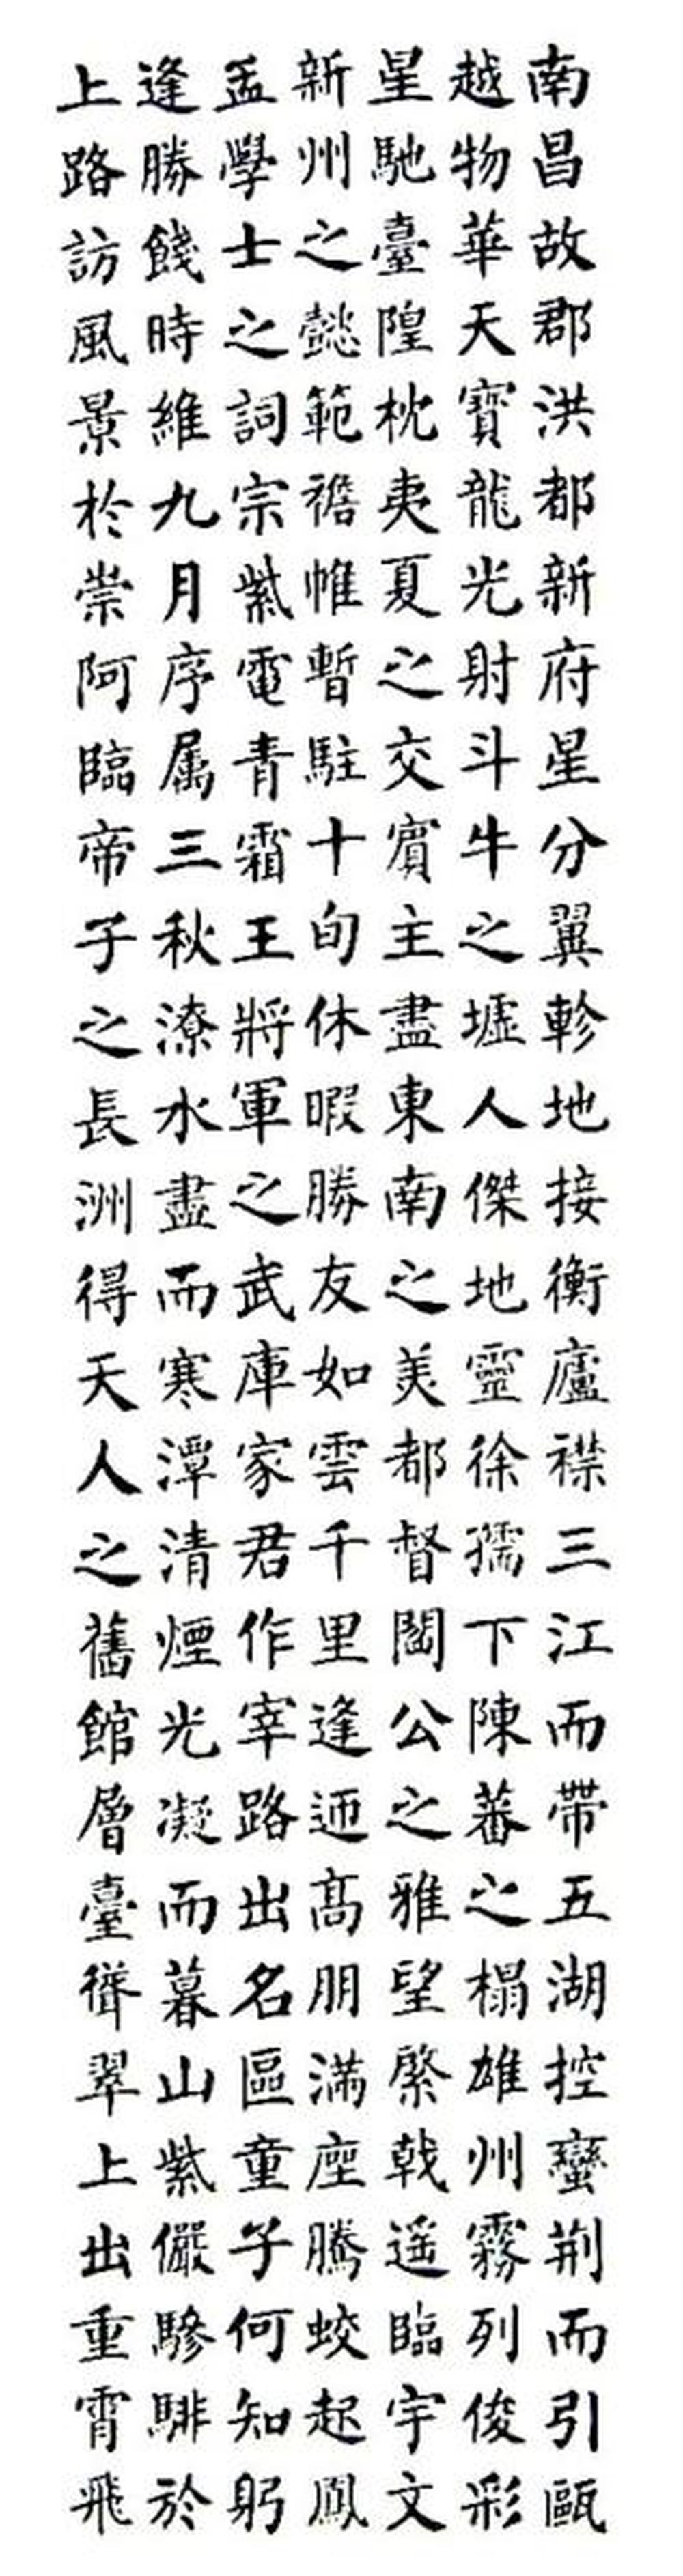 南昌故郡洪都新府星分翼軫地接衡廬襟三江而帶五湖控蠻荆而引甌
越物華天寶龍光射斗牛之墟人傑地靈徐孺下陳蕃之榻雄州霧列俊彩
星馳臺隍枕夷夏之交賓主盡東南之美都督閻公之雅望棨戟遥臨宇文
新州之懿範襜帷暫駐十旬休暇勝友如雲千里逢迊髙朋滿座騰蛟起鳳
孟學士之詞宗紫電青霜王將軍之武庫家君作宰路出名區童子何知躬
逢勝餞時維九月序属三秋潦水盡而寒潭清煙光凝而暮山紫儼驂騑於
上路訪風景於崇阿臨帝子之長洲得天人之舊館層臺聳翠上出重霄飛